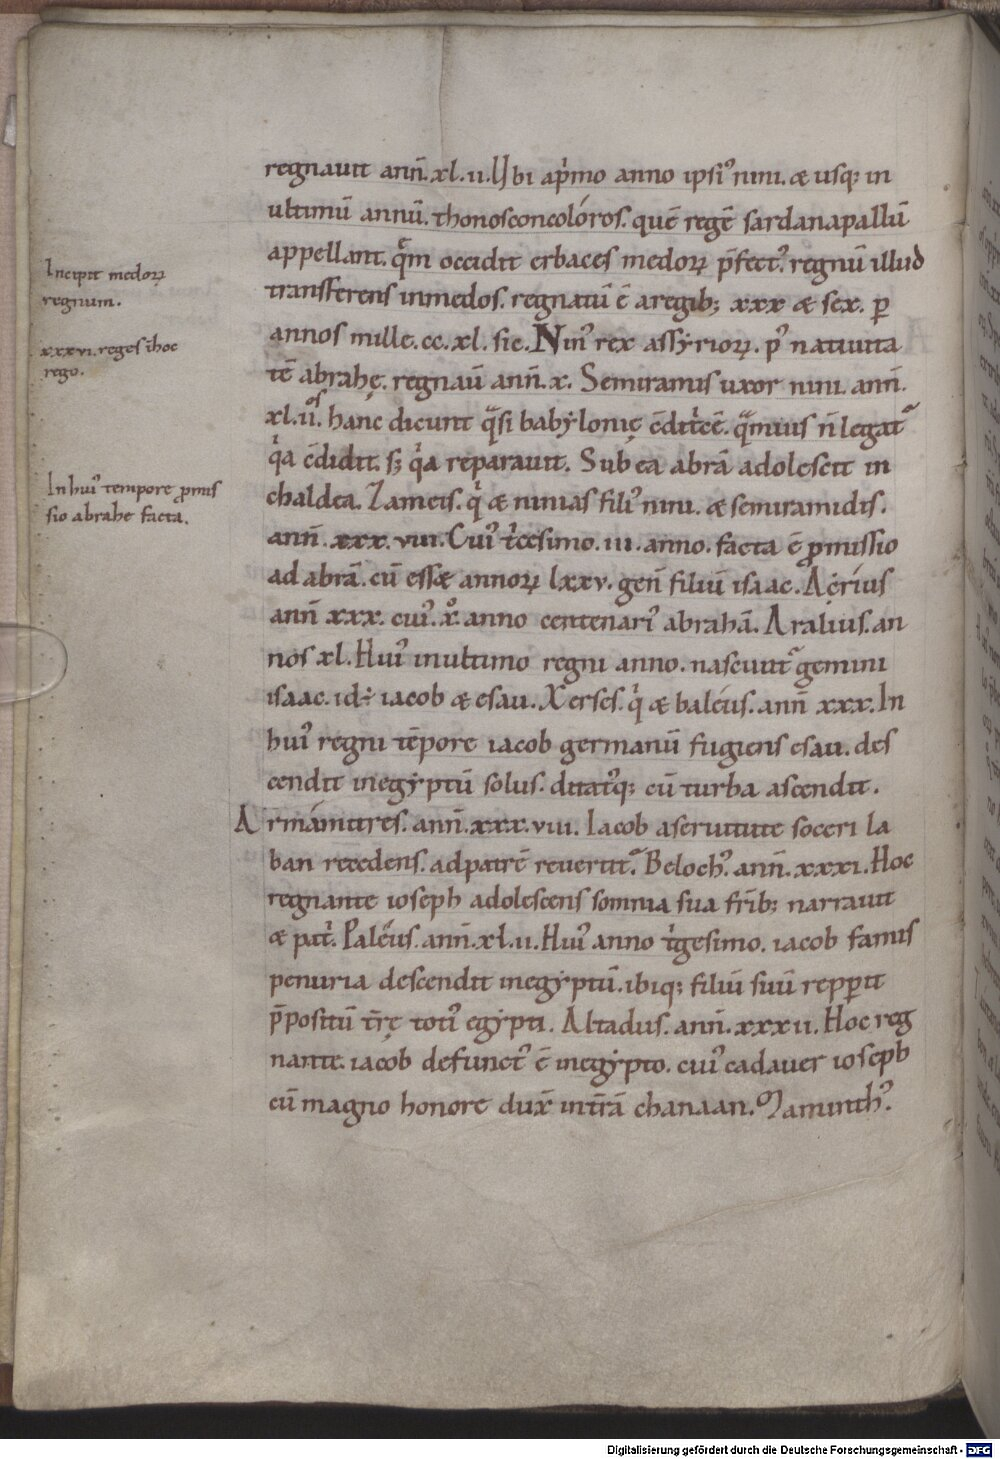 regnauit ann̄. xl. ii. Ubi ap̓mo anno ipsi᾽ nini. & usq; in
ultimū annū. thonosconcolóros. quē regē sardanapallū
appellant. qͣm occidit erbaces medoꝝ p̄fect᾽. regnū illud
Incipit medoꝝ
regnum.
transferens inmedos. regnatū ē aregib; xxx & sex. ꝑ
annos mille. cc. xl. sic. Nin᾽ rex assẏrioꝝ. p᾽ natiuita
xxxvi. reges ī hoc
regō.
tē abrahę. regnaū ann̄. x. Semiramis uxor nini. ann̄.
xl. ii᷒. hanc dicunt qͣsi babẏlonię c̄ditͥcē. qͣmuis n̄ legatᷣ
qͥa c̄didit. s; qͥa reparauit. Sub ea abrā adolescit in
In hui᾽ tempore ꝓmis
sio abrahe facta.
chaldea. Zameis. qͥ & ninias fili᾽ nini. & semiramidis.
ann̄. xxx. viii. Cui᾽ tͥcesimo. iii. anno. facta ē ꝓmissio
ad abrā. cū ess& annoꝝ lxxv. gen̄ filiū isaac. Aċrius
ann̄ xxx. cui᾽. x̊. anno centenari᾽ abrahā. Aralius. an
nos xl. Hui᾽ inultimo regni anno. nascuntᷣ gemini
isaac. id÷ iacob & esau. Xerses. qͥ & baléus. ann̄ xxx. In
hui᾽ regni tēpore iacob germanū fugiens esau. des
cendit inegẏptū solus. ditat᾽q; cū turba ascendit.
Armámitres. ann̄. xxx. viii. Iacob aseruitute soceri la
ban recedens. adpatrē reuertitᷣ. Beloch᾽. ann̄. xxxi. Hoc
regnante ioseph adolescens somnia sua fr̄ib; narrauit
& patͥ. Paléus. ann̄. xl. ii. Hui᾽ anno tͥgesimo. iacob famis
penuria descendit inegẏptū. ibiq; filiū suū repꝑit
p̄positū tr̄ę toti᾽ egẏpti. Altadus. ann̄. xxxii. Hoc reg
nante. iacob defunct᾽ ē inegẏpto. cui᾽ cadauer ioseph
cū magno honore dux̄ intr̄ā chanaan. Maminth᾽.
Digitalisierung gefördert durch die Deutsche Forschungsgemeinschaft - DFG